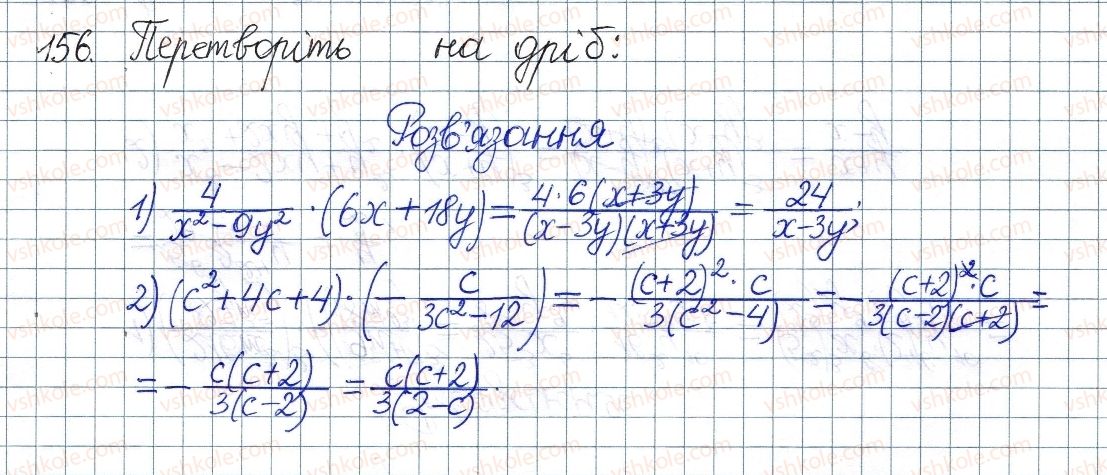 156. Перетворіть на дріб:
Розв'язання
1) 4/(x²-9y²) · (6x+18y) = (4·6(x+3y))/((x-3y)(x+3y)) = 24/(x-3y);
2) (c²+4c+4) · (- c/(3c²-12)) = - ((c+2)²·c)/(3(c²-4)) = - ((c+2)²·c)/(3(c-2)(c+2)) =
= - (c(c+2))/(3(c-2)) = (c(c+2))/(3(2-c)).